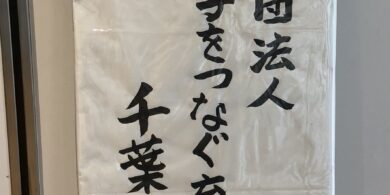 団法人
手をつなぐ
千葉